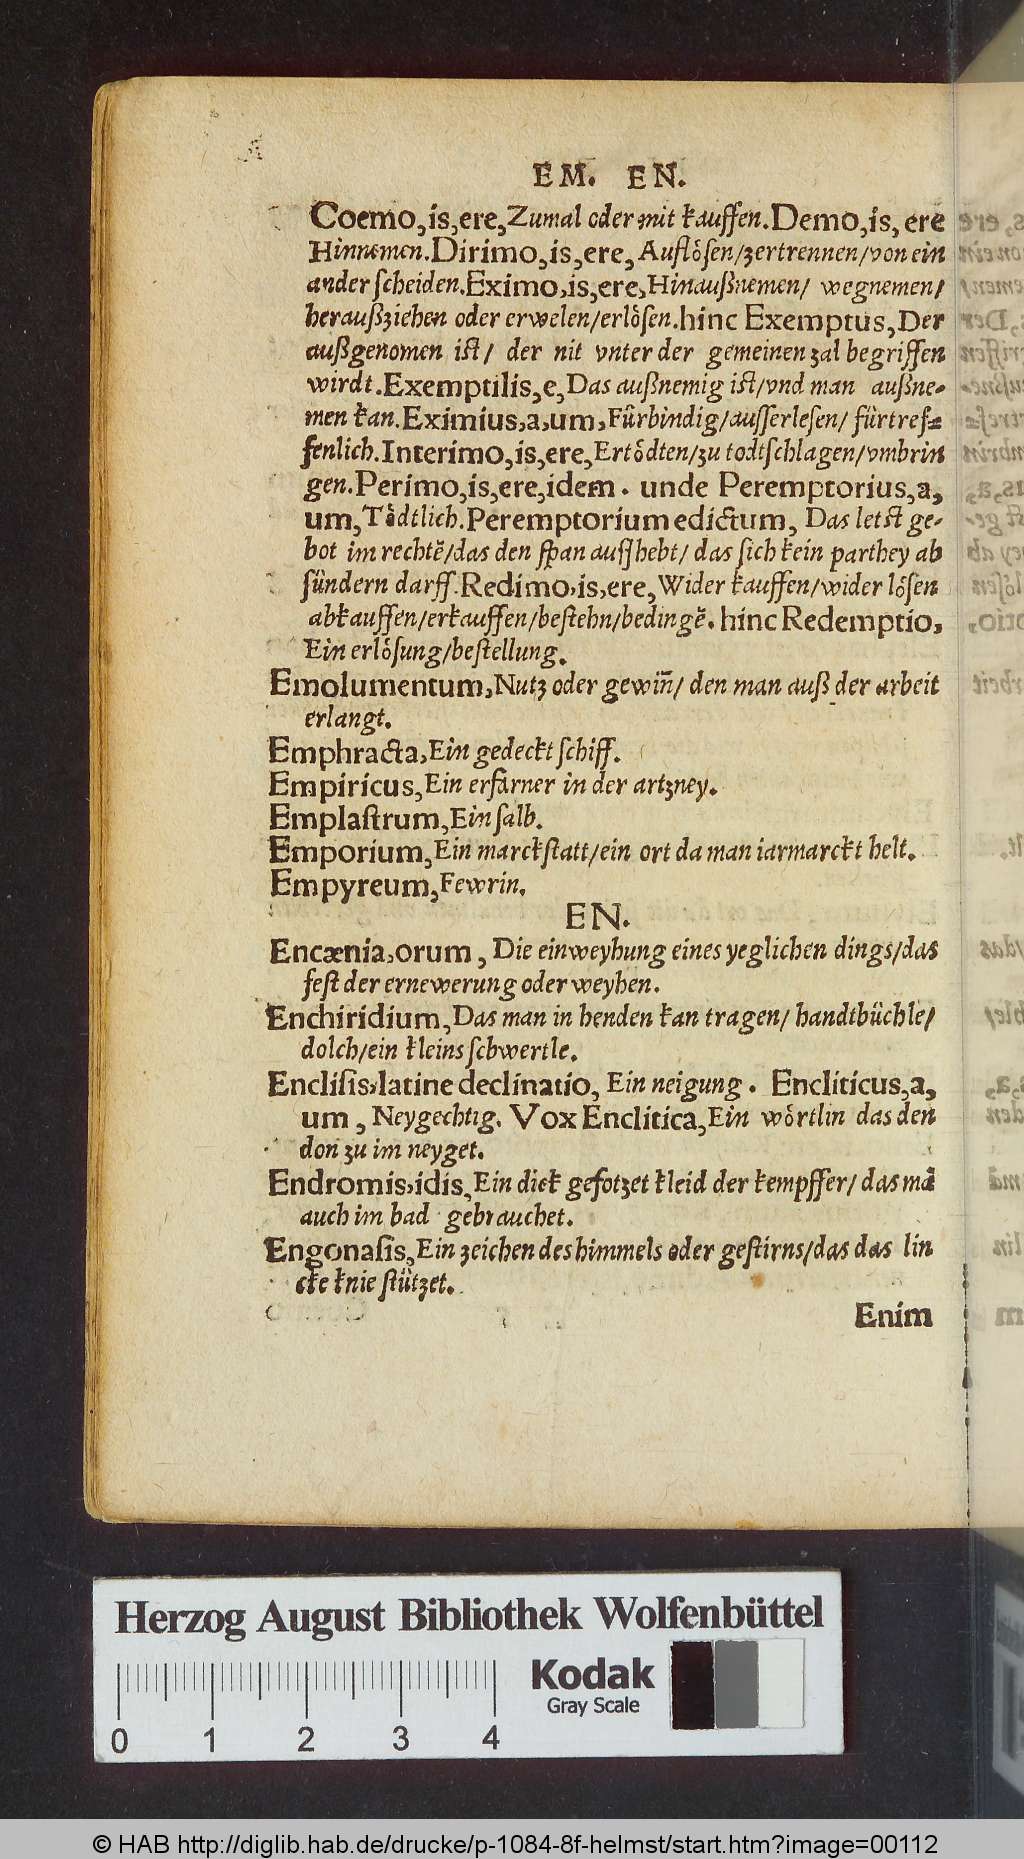 EM. EN.
Coemo, is, ere, Zumal oder mit kauffen. Demo, is, ere
Hinnemen. Dirimo, is, ere, Auflösen/zertrennen/von ein
ander scheiden. Eximo, is, ere, Hinaußnemen/ wegnemen/
heraußziehen oder erwelen/erlösen. hinc Exemptus, Der
außgenomen ist/ der nit vnter der gemeinen zal begriffen
wirdt. Exemptilis, e, Das außnemig ist/vnd man außne-
men kan. Eximius, a, um, Fürbindig/ausserlesen/ fürtref-
fenlich. Interimo, is, ere, Ertödten/zu todtschlagen/vmbrin
gen. Perimo, is, ere, idem. unde Peremptorius, a,
um, Tödtlich. Peremptorium edictum, Das letst ge-
bot im rechtẽ/das den span auffhebt/ das sich kein parthey ab
sündern darff. Redimo, is, ere, Wider kauffen/wider lösen
abkauffen/erkauffen/bestehn/bedingẽ. hinc Redemptio,
Ein erlösung/bestellung.
Emolumentum, Nutz oder gewin̄/ den man auß der arbeit
erlangt.
Emphracta, Ein gedeckt schiff.
Empiricus, Ein erfarner in der artzney.
Emplastrum, Ein salb.
Emporium, Ein marckstatt/ein ort da man iarmarckt helt.
Empyreum, Fewrin.
EN.
Encænia, orum, Die einweyhung eines yeglichen dings/das
fest der ernewerung oder weyhen.
Enchiridium, Das man in henden kan tragen/ handtbüchle/
dolch/ein kleins schwertle.
Enclisis, latine declinatio, Ein neigung. Encliticus, a,
um, Neygechtig. Vox Enclitica, Ein wörtlin das den
don zu im neyget.
Endromis, idis, Ein dick gefotzet kleid der kempffer/ das mā
auch im bad gebrauchet.
Engonasis, Ein zeichen des himmels oder gestirns/das das lin
cke knie stützet.
Enim
Herzog August Bibliothek Wolfenbüttel
Kodak
Gray Scale
0 1 2 3 4
© HAB http://diglib.hab.de/drucke/p-1084-8f-helmst/start.htm?image=00112